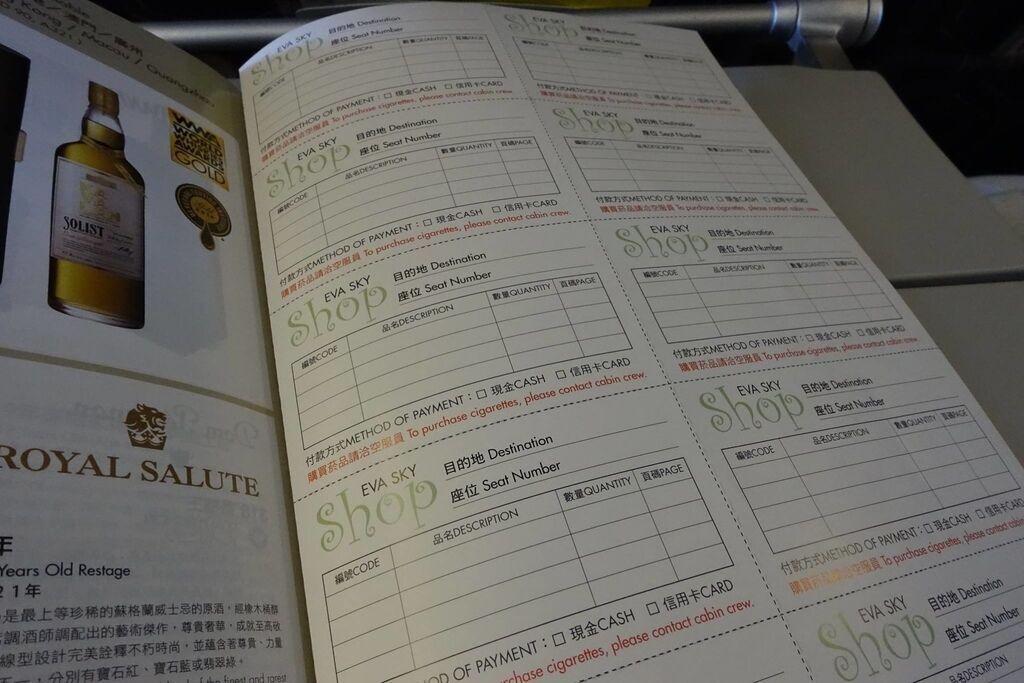 Kong / Macau / Guangzhou
WORLD
GOLD
SOLIST
ROYAL SALUTE
年
Years Old Restage
21年
是最上等珍稀的蘇格蘭威士忌的原酒，經橡木桶醇
調酒師調配出的藝術傑作，尊貴奢華，成就至高敬
線型設計完美詮釋不朽時尚，並蘊含著尊貴、力量
分別有寶石紅、寶石藍或翡翠綠。
the finest and rarest
EVA SKY
Shop
目的地 Destination
座位 Seat Number
編號CODE 品名DESCRIPTION 數量QUANTITY 頁碼PAGE
付款方式METHOD OF PAYMENT：□ 現金CASH □ 信用卡CARD
購買菸品請洽空服員 To purchase cigarettes, please contact cabin crew.
EVA SKY
Shop
目的地 Destination
座位 Seat Number
編號CODE 品名DESCRIPTION 數量QUANTITY 頁碼PAGE
付款方式METHOD OF PAYMENT：□ 現金CASH □ 信用卡CARD
購買菸品請洽空服員 To purchase cigarettes, please contact cabin crew.
EVA SKY
Shop
目的地 Destination
座位 Seat Number
編號CODE 品名DESCRIPTION 數量QUANTITY 頁碼PAGE
付款方式METHOD OF PAYMENT：□ 現金CASH □ 信用卡CARD
購買菸品請洽空服員 To purchase cigarettes, please contact cabin crew.
EVA SKY
Shop
目的地 Destination
座位 Seat Number
編號CODE 品名DESCRIPTION 數量QUANTITY 頁碼PAGE
METHOD OF PAYMENT：□ 現金CASH □ 信用卡CARD
purchase cigarettes, please contact cabin crew.
EVA SKY
Shop
目的地 Destination
座位 Seat Number
編號CODE 品名DESCRIPTION 數量QUANTITY 頁碼PAGE
付款方式METHOD OF PAYMENT：□ 現金CASH □ 信用卡CARD
購買菸品請洽空服員 To purchase cigarettes, please contact cabin crew.
EVA SKY
Shop
目的地 Destination
座位 Seat Number
編號CODE 品名DESCRIPTION 數量QUANTITY 頁碼PAGE
付款方式METHOD OF PAYMENT：□ 現金CASH □ 信用卡CARD
購買菸品請洽空服員 To purchase cigarettes, please contact cabin crew.
EVA SKY
Shop
目的地 Destination
座位 Seat Number
編號CODE 品名DESCRIPTION 數量QUANTITY 頁碼PAGE
付款方式METHOD OF PAYMENT：□ 現金CASH □ 信用卡CARD
購買菸品請洽空服員 To purchase cigarettes, please contact cabin crew.
EVA SKY
Shop
目的地 Destination
座位 Seat Number
編號CODE 品名DESCRIPTION 數量QUANTITY 頁碼PAGE
付款方式METHOD OF PAYMENT：□ 現金CASH □ 信用卡CARD
購買菸品請洽空服員 To purchase cigarettes, please contact cabin
EVA SKY
Shop
目的地 Destination
座位 Seat Number
品名DESCRIPTION